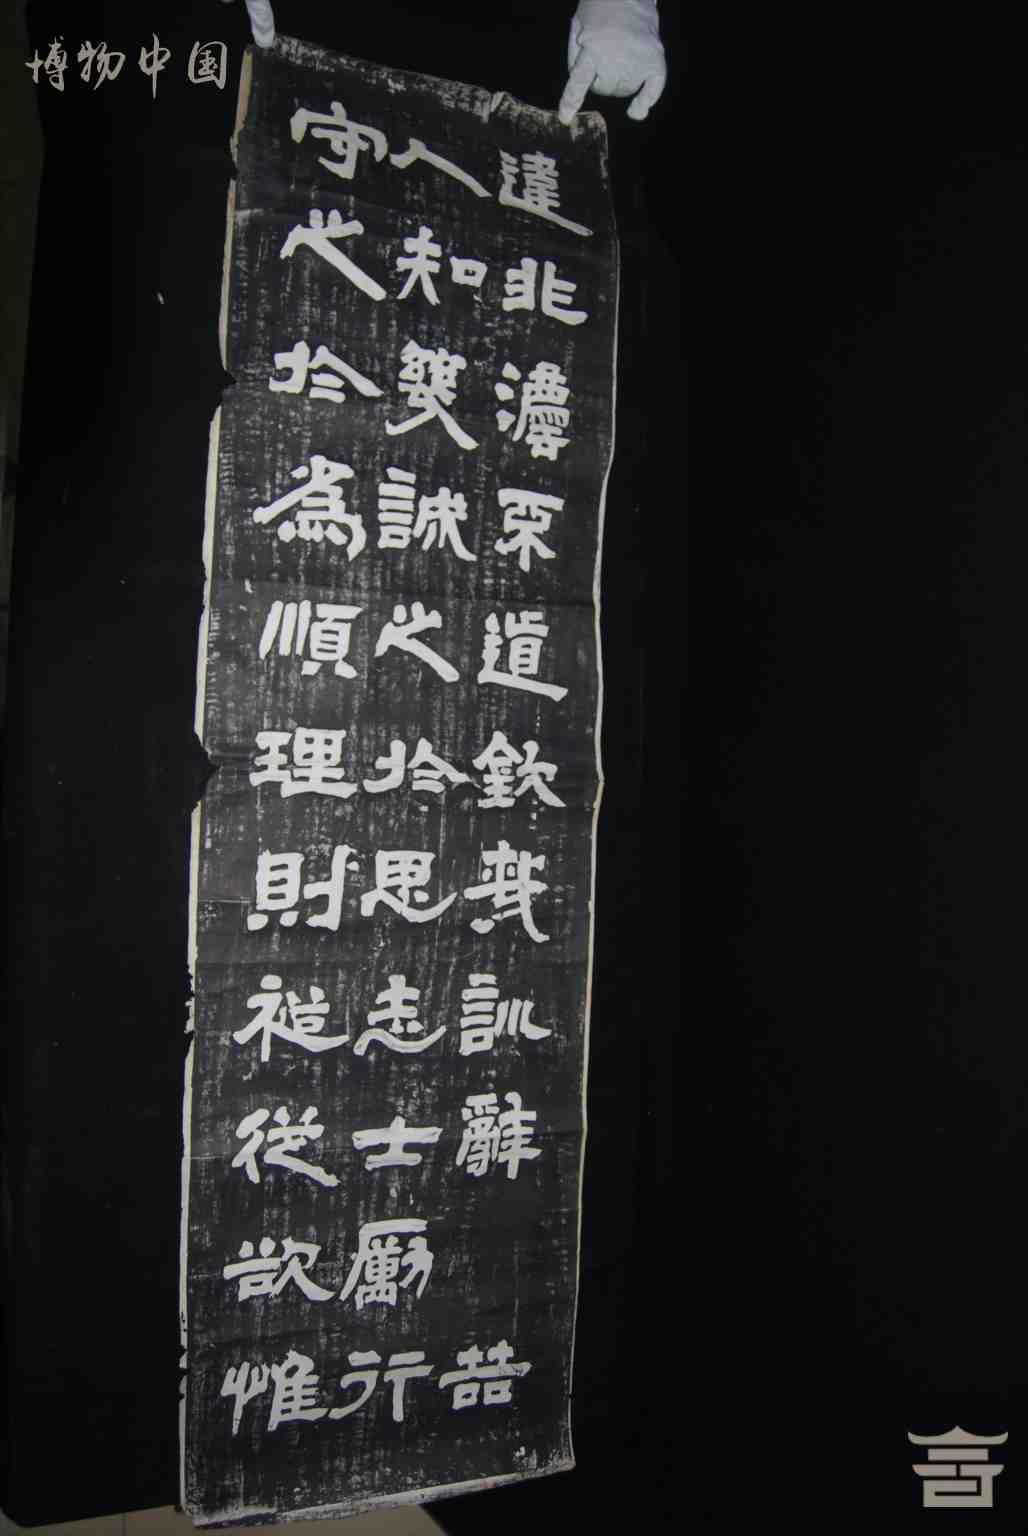 博物中国
違非灋不道欽哉訓辭 喆
人知幾誠之於思志士勵行
守之於為順理則裕從欲惟